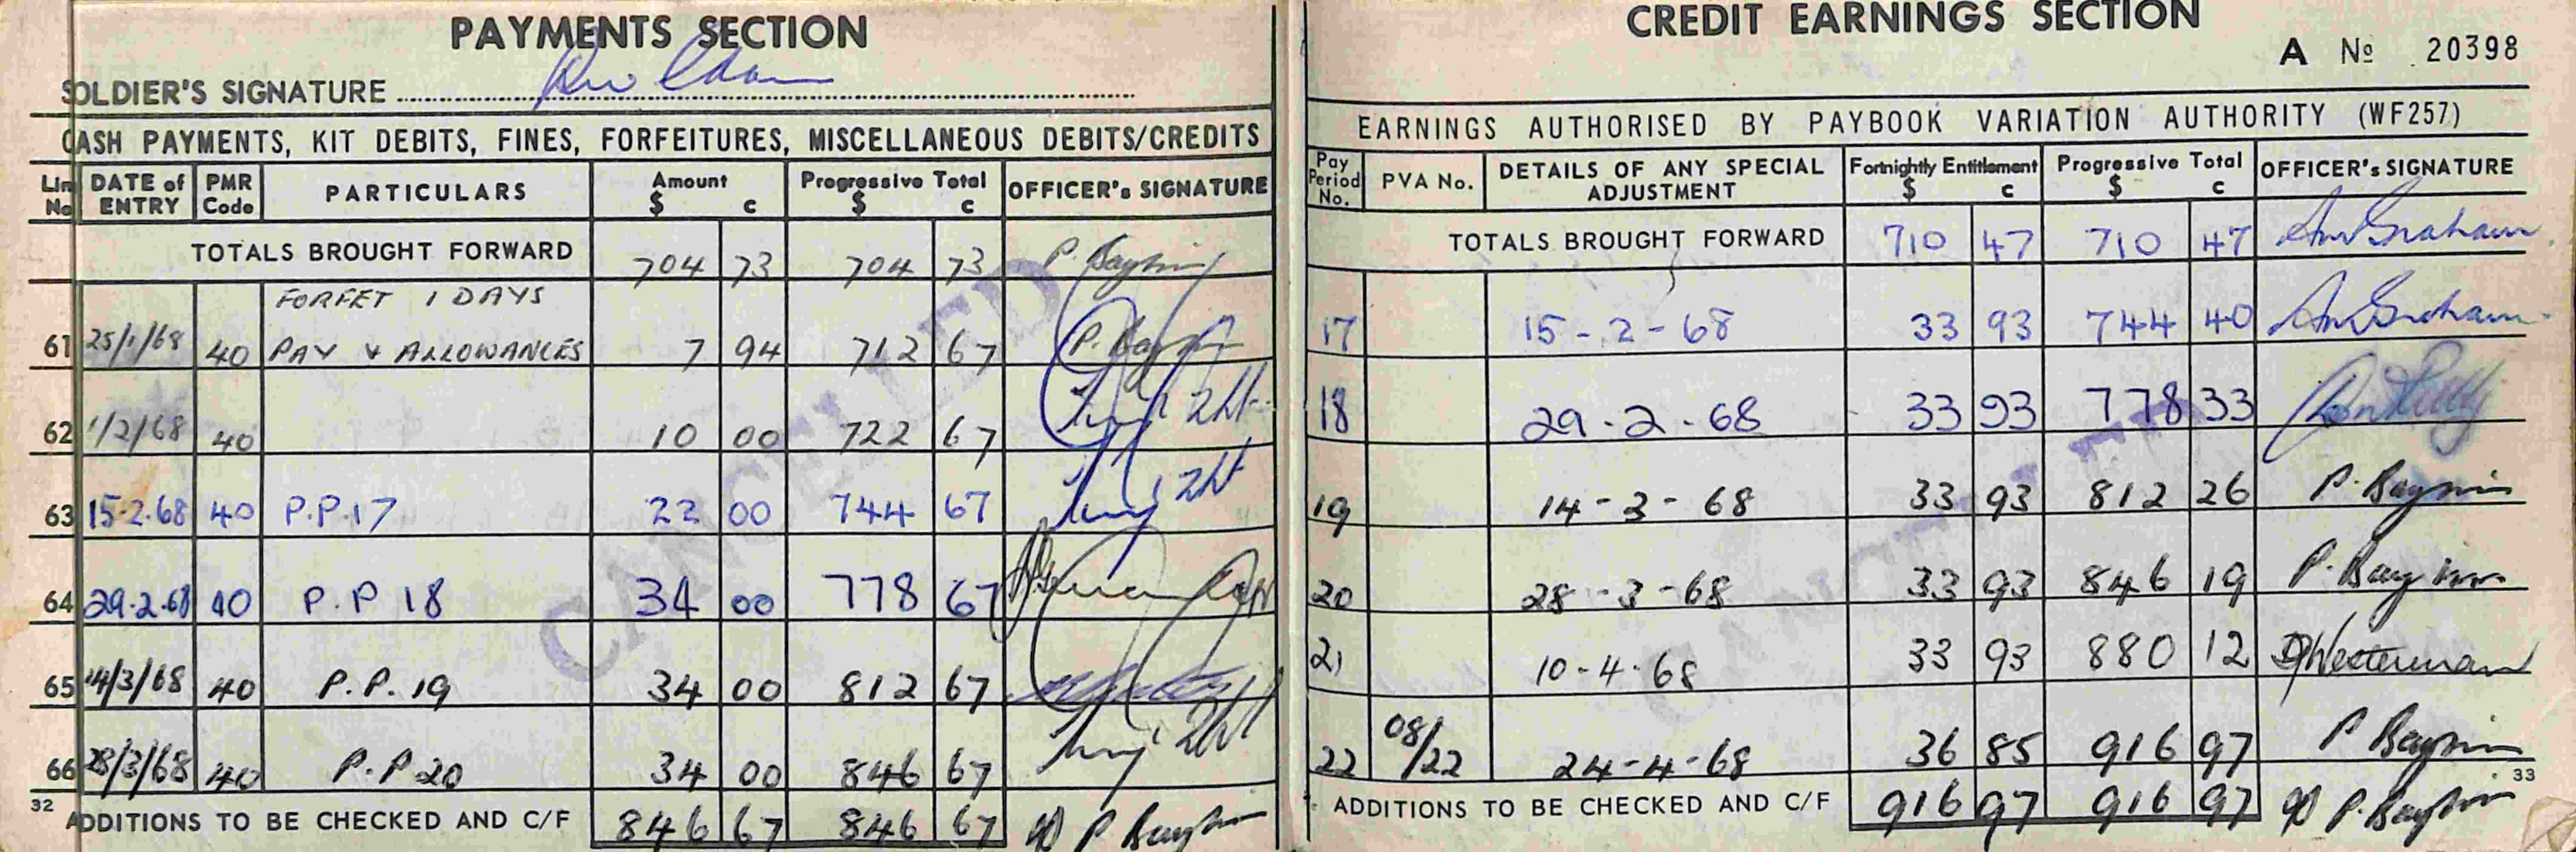 PAYMENTS SECTION
SOLDIER'S SIGNATURE
CASH PAYMENTS, KIT DEBITS, FINES, FORFEITURES, MISCELLANEOUS DEBITS/CREDITS
Lin No DATE of ENTRY PMR Code PARTICULARS Amount $ c Progressive Total $ c OFFICER's SIGNATURE
TOTALS BROUGHT FORWARD 704 73 704 73
FORFET 1 DAYS
61 25/1/68 40 PAY & ALLOWANCES 7 94 712 67
62 1/2/68 40 10 00 722 67
63 15-2-68 40 P.P.17 22 00 744 67
64 29-2-68 40 P.P 18 34 00 778 67
65 14/3/68 40 P.P. 19 34 00 812 67
66 28/3/68 40 P.P 20 34 00 846 67
32 ADDITIONS TO BE CHECKED AND C/F 846 67 846 67
CANCELLED
CREDIT EARNINGS SECTION
A No 20398
EARNINGS AUTHORISED BY PAYBOOK VARIATION AUTHORITY (WF257)
Pay Period No. PVA No. DETAILS OF ANY SPECIAL ADJUSTMENT Fortnightly Entitlement $ c Progressive Total $ c OFFICER's SIGNATURE
TOTALS BROUGHT FORWARD 710 47 710 47
17 15-2-68 33 93 744 40
18 29-2-68 33 93 778 33
19 14-3-68 33 93 812 26
20 28-3-68 33 93 846 19
21 10-4-68 33 93 880 12
22 08/22 24-4-68 36 85 916 97
33
ADDITIONS TO BE CHECKED AND C/F 916 97 916 97